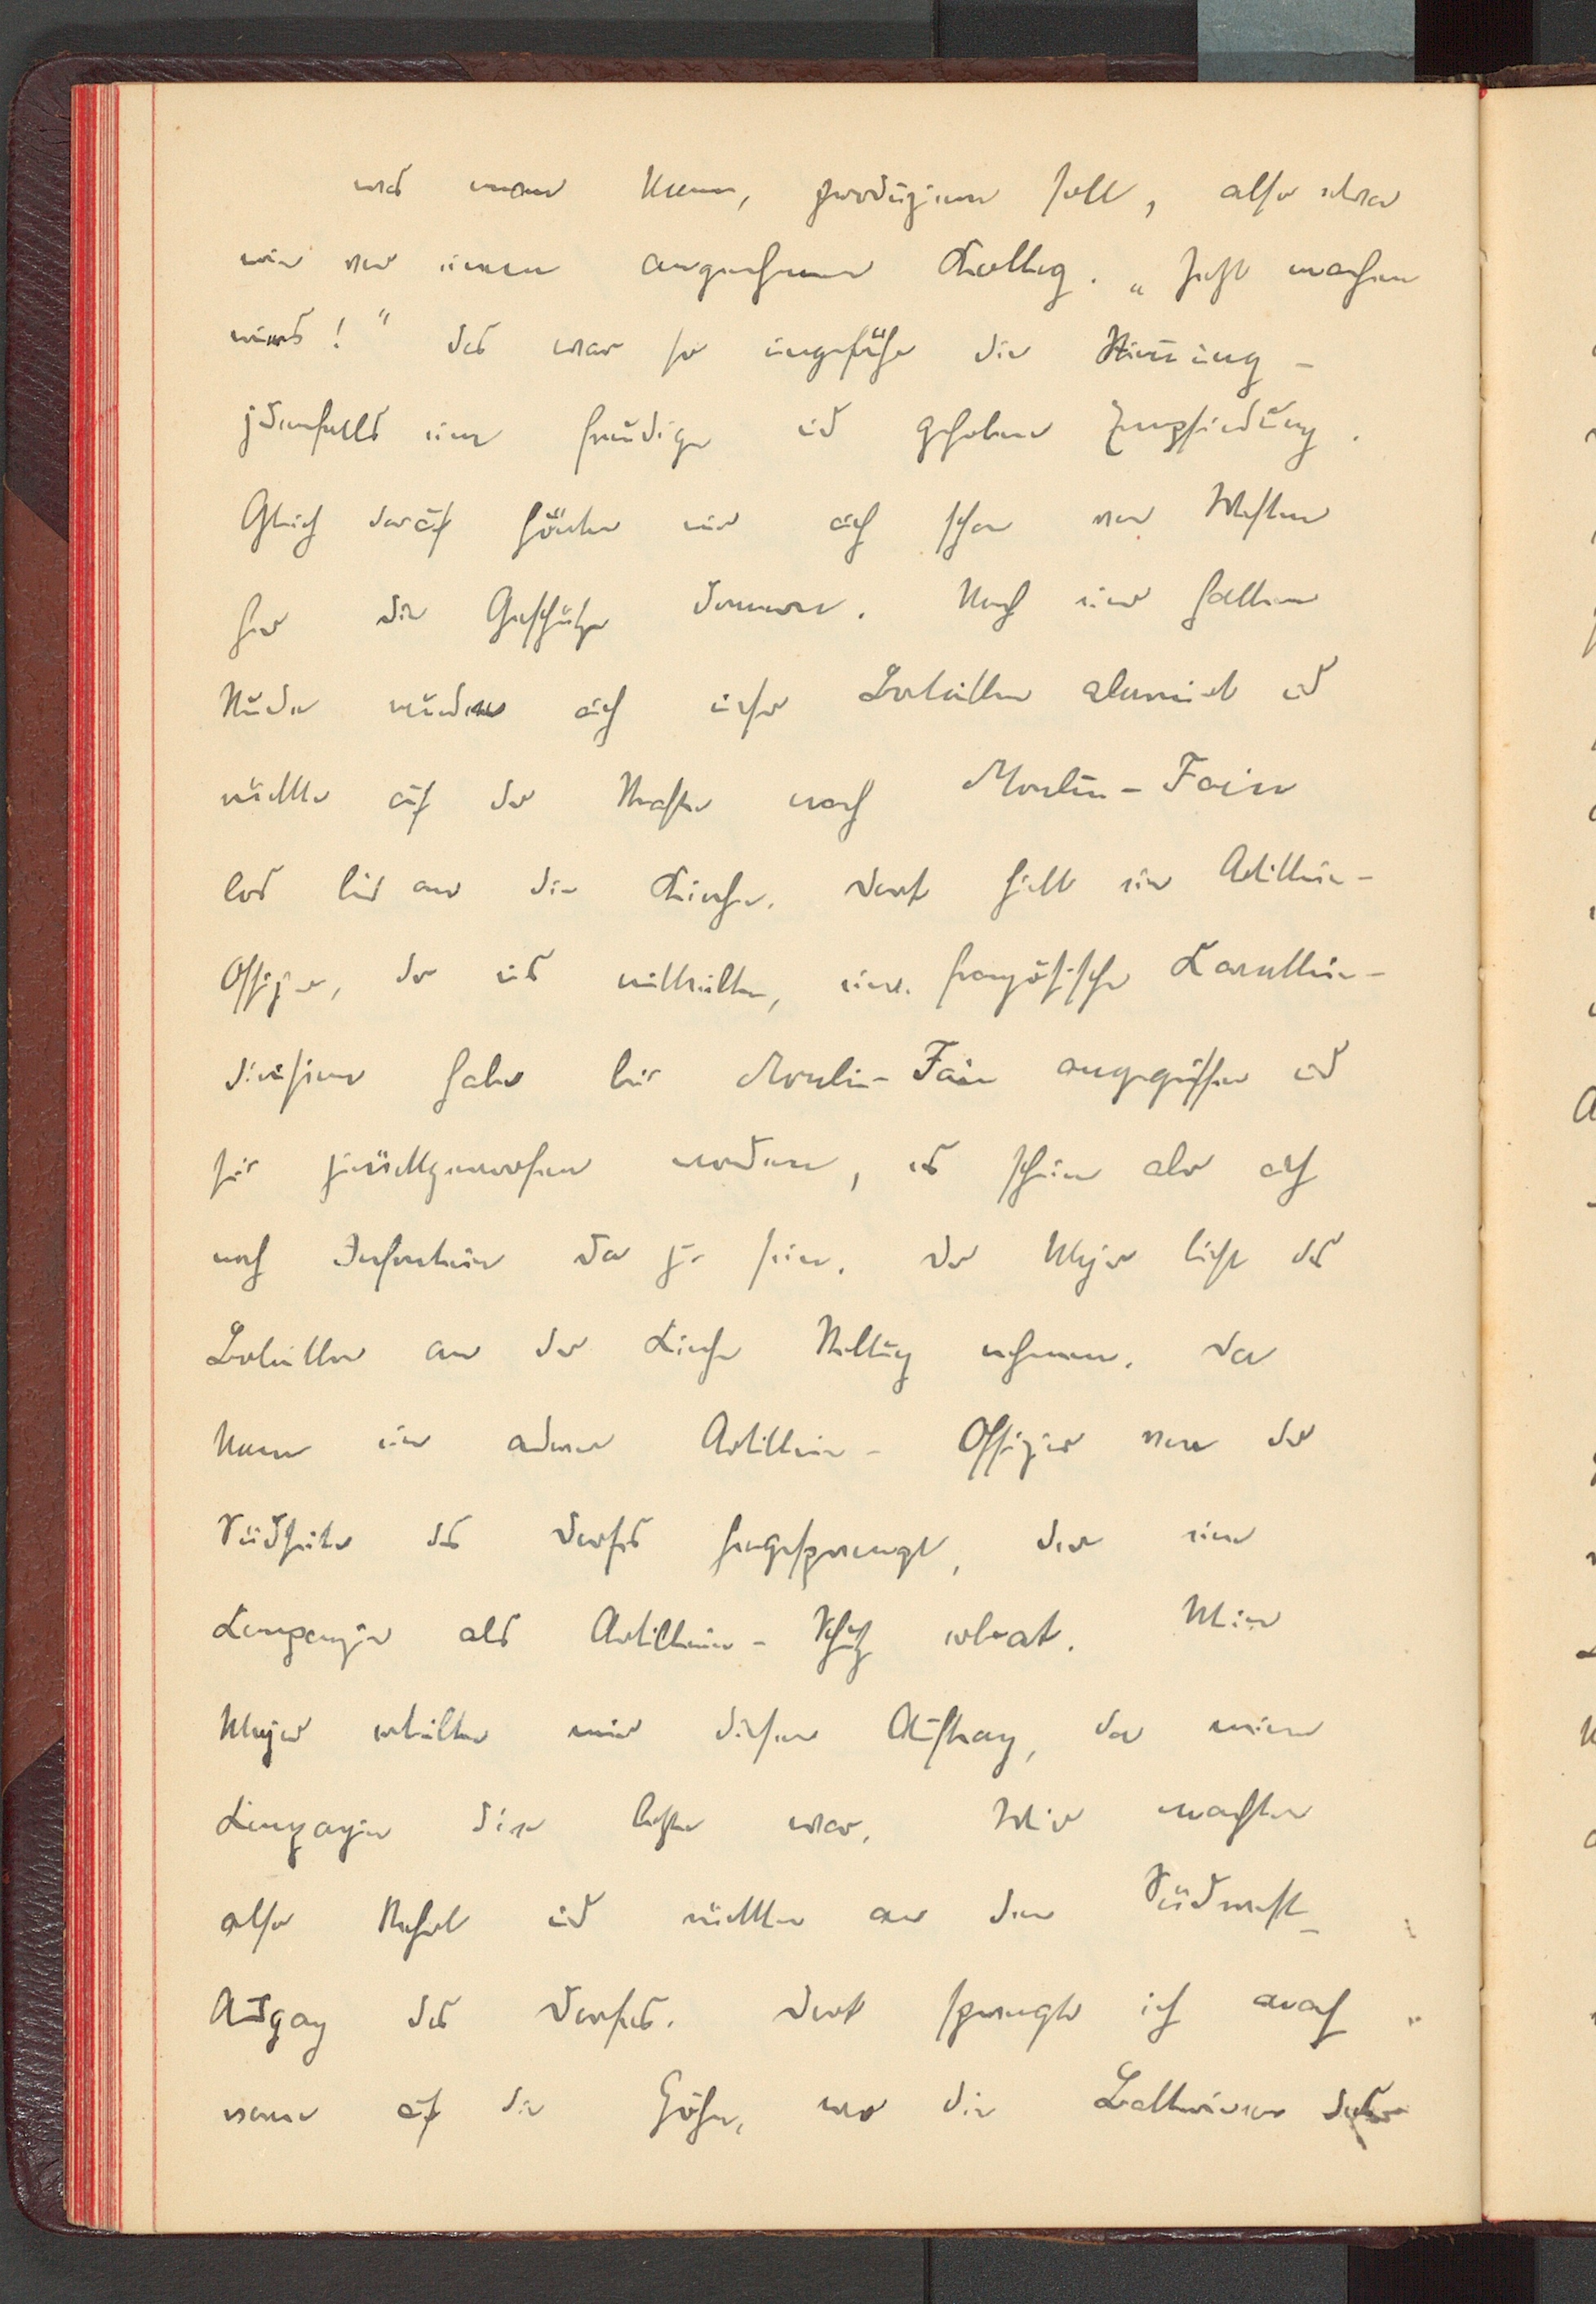 was man kann, produzieren soll, also etwa
wie vor einem angenehmen Kolleg. „Jetzt machen
wirs!" Das war so ungefähr die Stimmung –
jedenfalls eine freudige und gehobene Empfindung.
Gleich darauf hörten wir auch schon von Westen
her die Geschütze donnern. Nach einer halben
Stunde wurde auch unser Bataillon alarmiert und
rückte auf der Straße nach Moulin-Fain
los bis an die Kirche. Dort hielt ein Artillerie-
Offizier, der uns mitteilte, eine französische Kavallerie-
division habe bei Moulin-Fain angegriffen und
sei zurückgeworfen worden, es schiene aber auch
noch Infanterie da zu sein. Der Major ließ das
Bataillon an der Kirche Stellung nehmen. Da
kam ein anderer Artillerie-Offizier von der
Südseite des Dorfes herangesprengt, der eine
Kompagnie als Artillerie-Schutz erbat. Mein
Major erteilte mir diesen Auftrag, da meine
Kompagnie die letzte war. Wir machten
also Kehrt und rückten an den Südwest-
Ausgang des Dorfes. Dort sprengte ich nach
vorne auf die Höhe, wo die Batterien